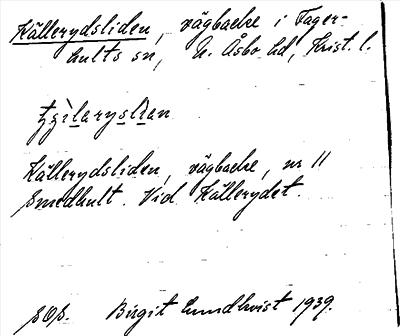 Källerydsliden, vägbacke i Fager-
hults sn, N. Åsbo hd, Krist. l.
Källerydsliden, vägbacke, nr 11
Smedhult. Vid Källerydet.
Birgit Lundkvist 1939.